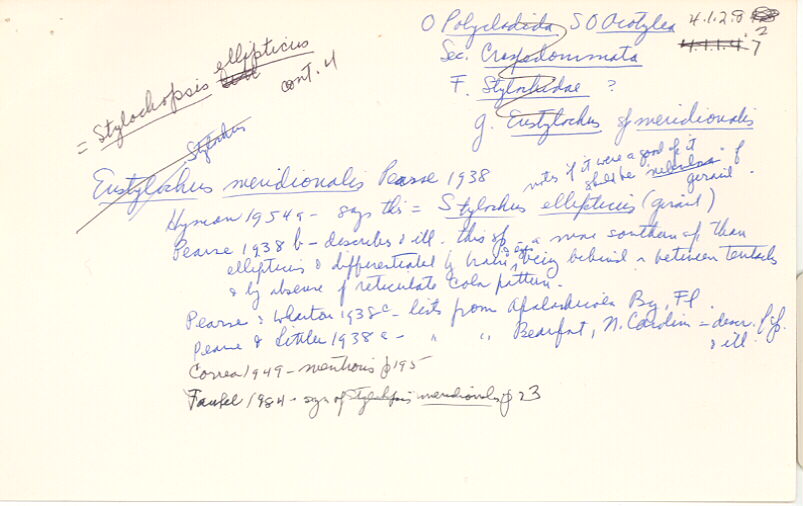 O Polycladida SO Acotylea 4.1.2.8
2
4.1.1.4.7
Sec. Craspedommata
F. Stylochidae ?
g. Eustylochus sp meridionalis
= Stylochopsis ellipticus
cont. 4
Stylochus
Eustylochus meridionalis Pearse 1938
notes if it were a good sp it
should be nebulosa of
girard.
Hyman 1954a - says this = Stylochus ellipticus (girard)
Pearse 1938 b - describes & ill. this sp as a more southern sp than
ellipticus & differentiated by brain & eyes being behind & between tentacles
& by absence of reticulate color pattern.
Pearse & Wharton 1938c - lists from Apalachicola Bay, Fl.
Pearse & Littler 1938 a - " " Beaufort, N. Carolina - descr. of sp.
& ill.
Correa 1949 - mentions p 195
Faubel 1984 - syn of Stylochopsis meridionalis p 23